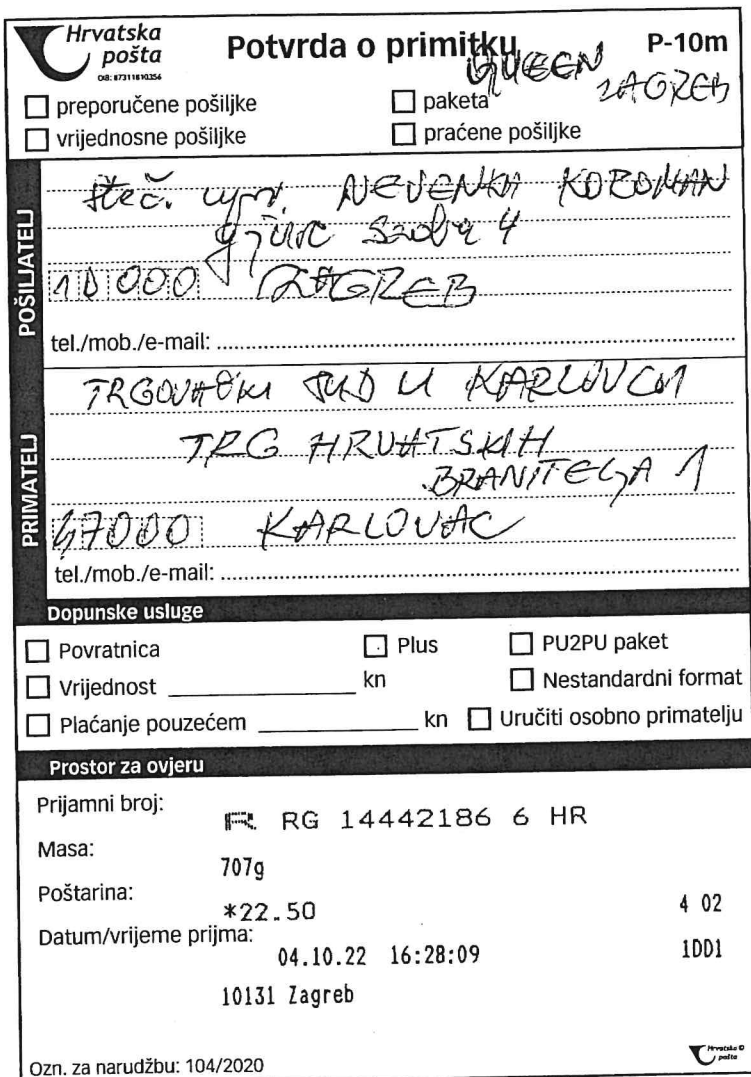 Hrvatska
pošta
OIB: 87311810356
Potvrda o primitku
P-10m
QUEEN
ZAGREB
preporučene pošiljke
paketa
vrijednosne pošiljke
praćene pošiljke
POŠILJATELJ
steč. upr. NEVENKA
4
10 000 ZAGREB
tel./mob./e-mail:
PRIMATELJ
TRGOVAČKI SUD U KARLOVCU
TRG HRVATSKIH
BRANITELJA 1
47000 KARLOVAC
tel./mob./e-mail:
Dopunske usluge
Povratnica
Plus
PU2PU paket
Vrijednost kn
Nestandardni format
Plaćanje pouzećem kn
Uručiti osobno primatelju
Prostor za ovjeru
Prijamni broj: R RG 14442186 6 HR
Masa: 707g
Poštarina: *22.50
4 02
Datum/vrijeme prijma: 04.10.22 16:28:09
1DD1
10131 Zagreb
Ozn. za narudžbu: 104/2020
Hrvatska
pošta